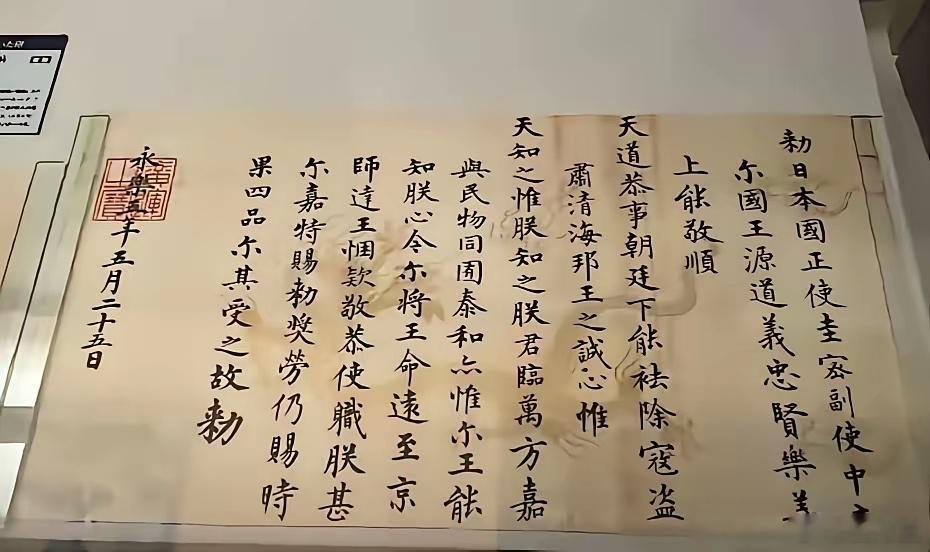 勅日本國正使圭密副使中
尓國王源道義忠賢樂善
上能敬順
天道恭事朝廷下能祛除寇盗
肅清海邦王之誠心惟
天知之惟朕知之朕君臨萬方嘉
與民物同囿泰和亦惟尓王能
知朕心今尓將王命遠至京
師達王悃欵敬恭使職朕甚
尓嘉特賜勅奬勞仍賜時
果四品尓其受之故勅
永樂五年五月二十五日
廣運之寶